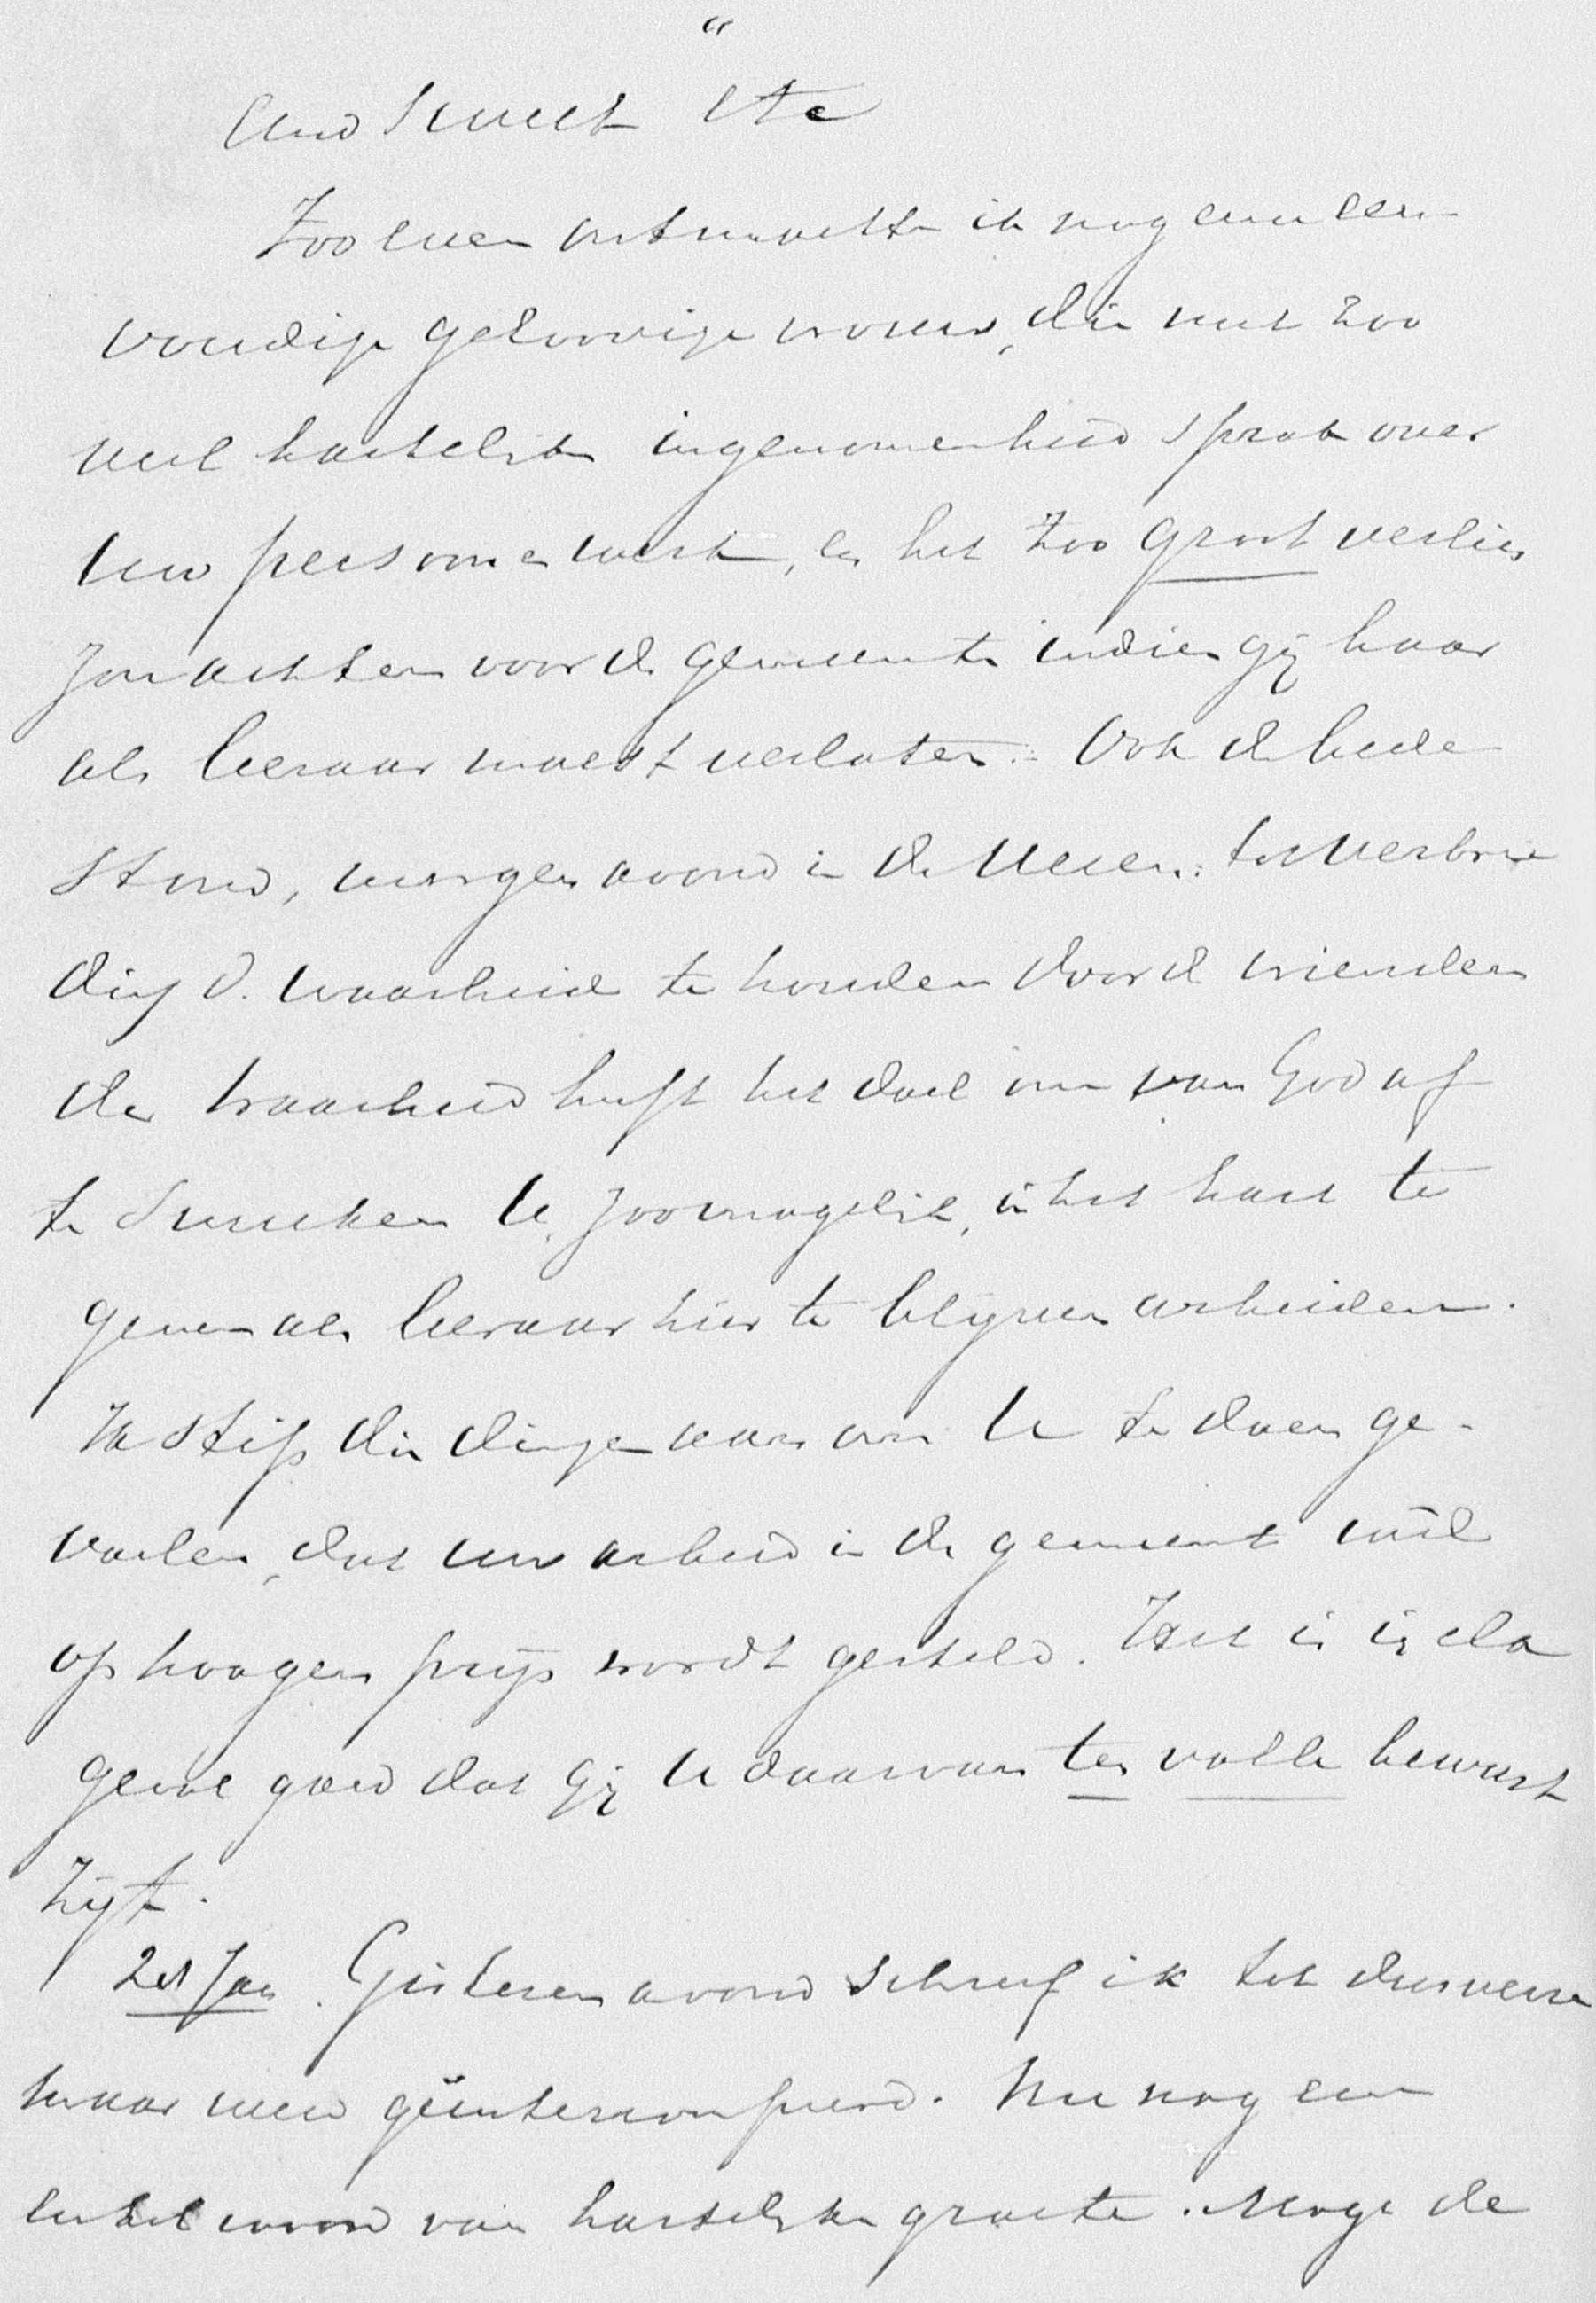 "
Uwd smeek etc
Zoo even ontmoette ik nog eene een
voudige geloovige vrouw, die met zoo
veel hartelijke ingenomenheid sprak over
Uw persoon en werk, en het zoo groot verlies
zou achten voor de gemeente indien gij haar
als leeraar moest verlaten. Ook de bede
stond, morgen avond in de Vereen: tot Verbrei
ding d. waarheid te houden door de vrienden
der waarheid heeft het doel om van God af
te smeeken U, zoo mogelijk, in het hart te
geven als leeraar hier te blijven arbeiden.
Ik stip die dingen aan om U te doen ge-
voelen, dat uw arbeid in de gemeente wèl
op hoogen prijs wordt gesteld. Het is in elk
geval goed dat Gij U daarvan ten volle bewust
zijt.
2es Jan. Gisteren avond schreef ik tot dusverre
maar werd geïnterrompeerd. Nu nog een
enkel woord van hartelijke groete. Moge de